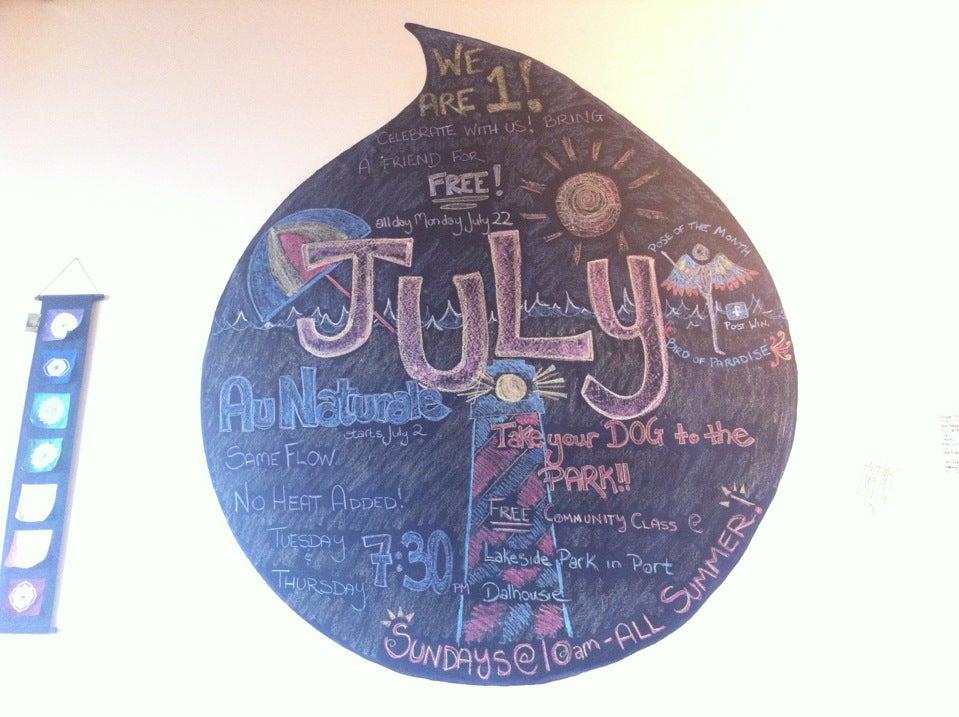 WE
ARE 1!
CELEBRATE WITH US! BRING
A FRIEND FOR
FREE!
all day Monday July 22
JULY
POSE OF THE MONTH
f
POST WIN.
BIRD OF PARADISE
Au Naturale
starts July 2
SAME FLOW
NO HEAT ADDED!
TUESDAY
&
THURSDAY
7:30 PM
Take your DOG to the
PARK!!
FREE COMMUNITY CLASS @
Lakeside Park in Port
Dalhousie
SUNDAYS @ 10am - ALL SUMMER!